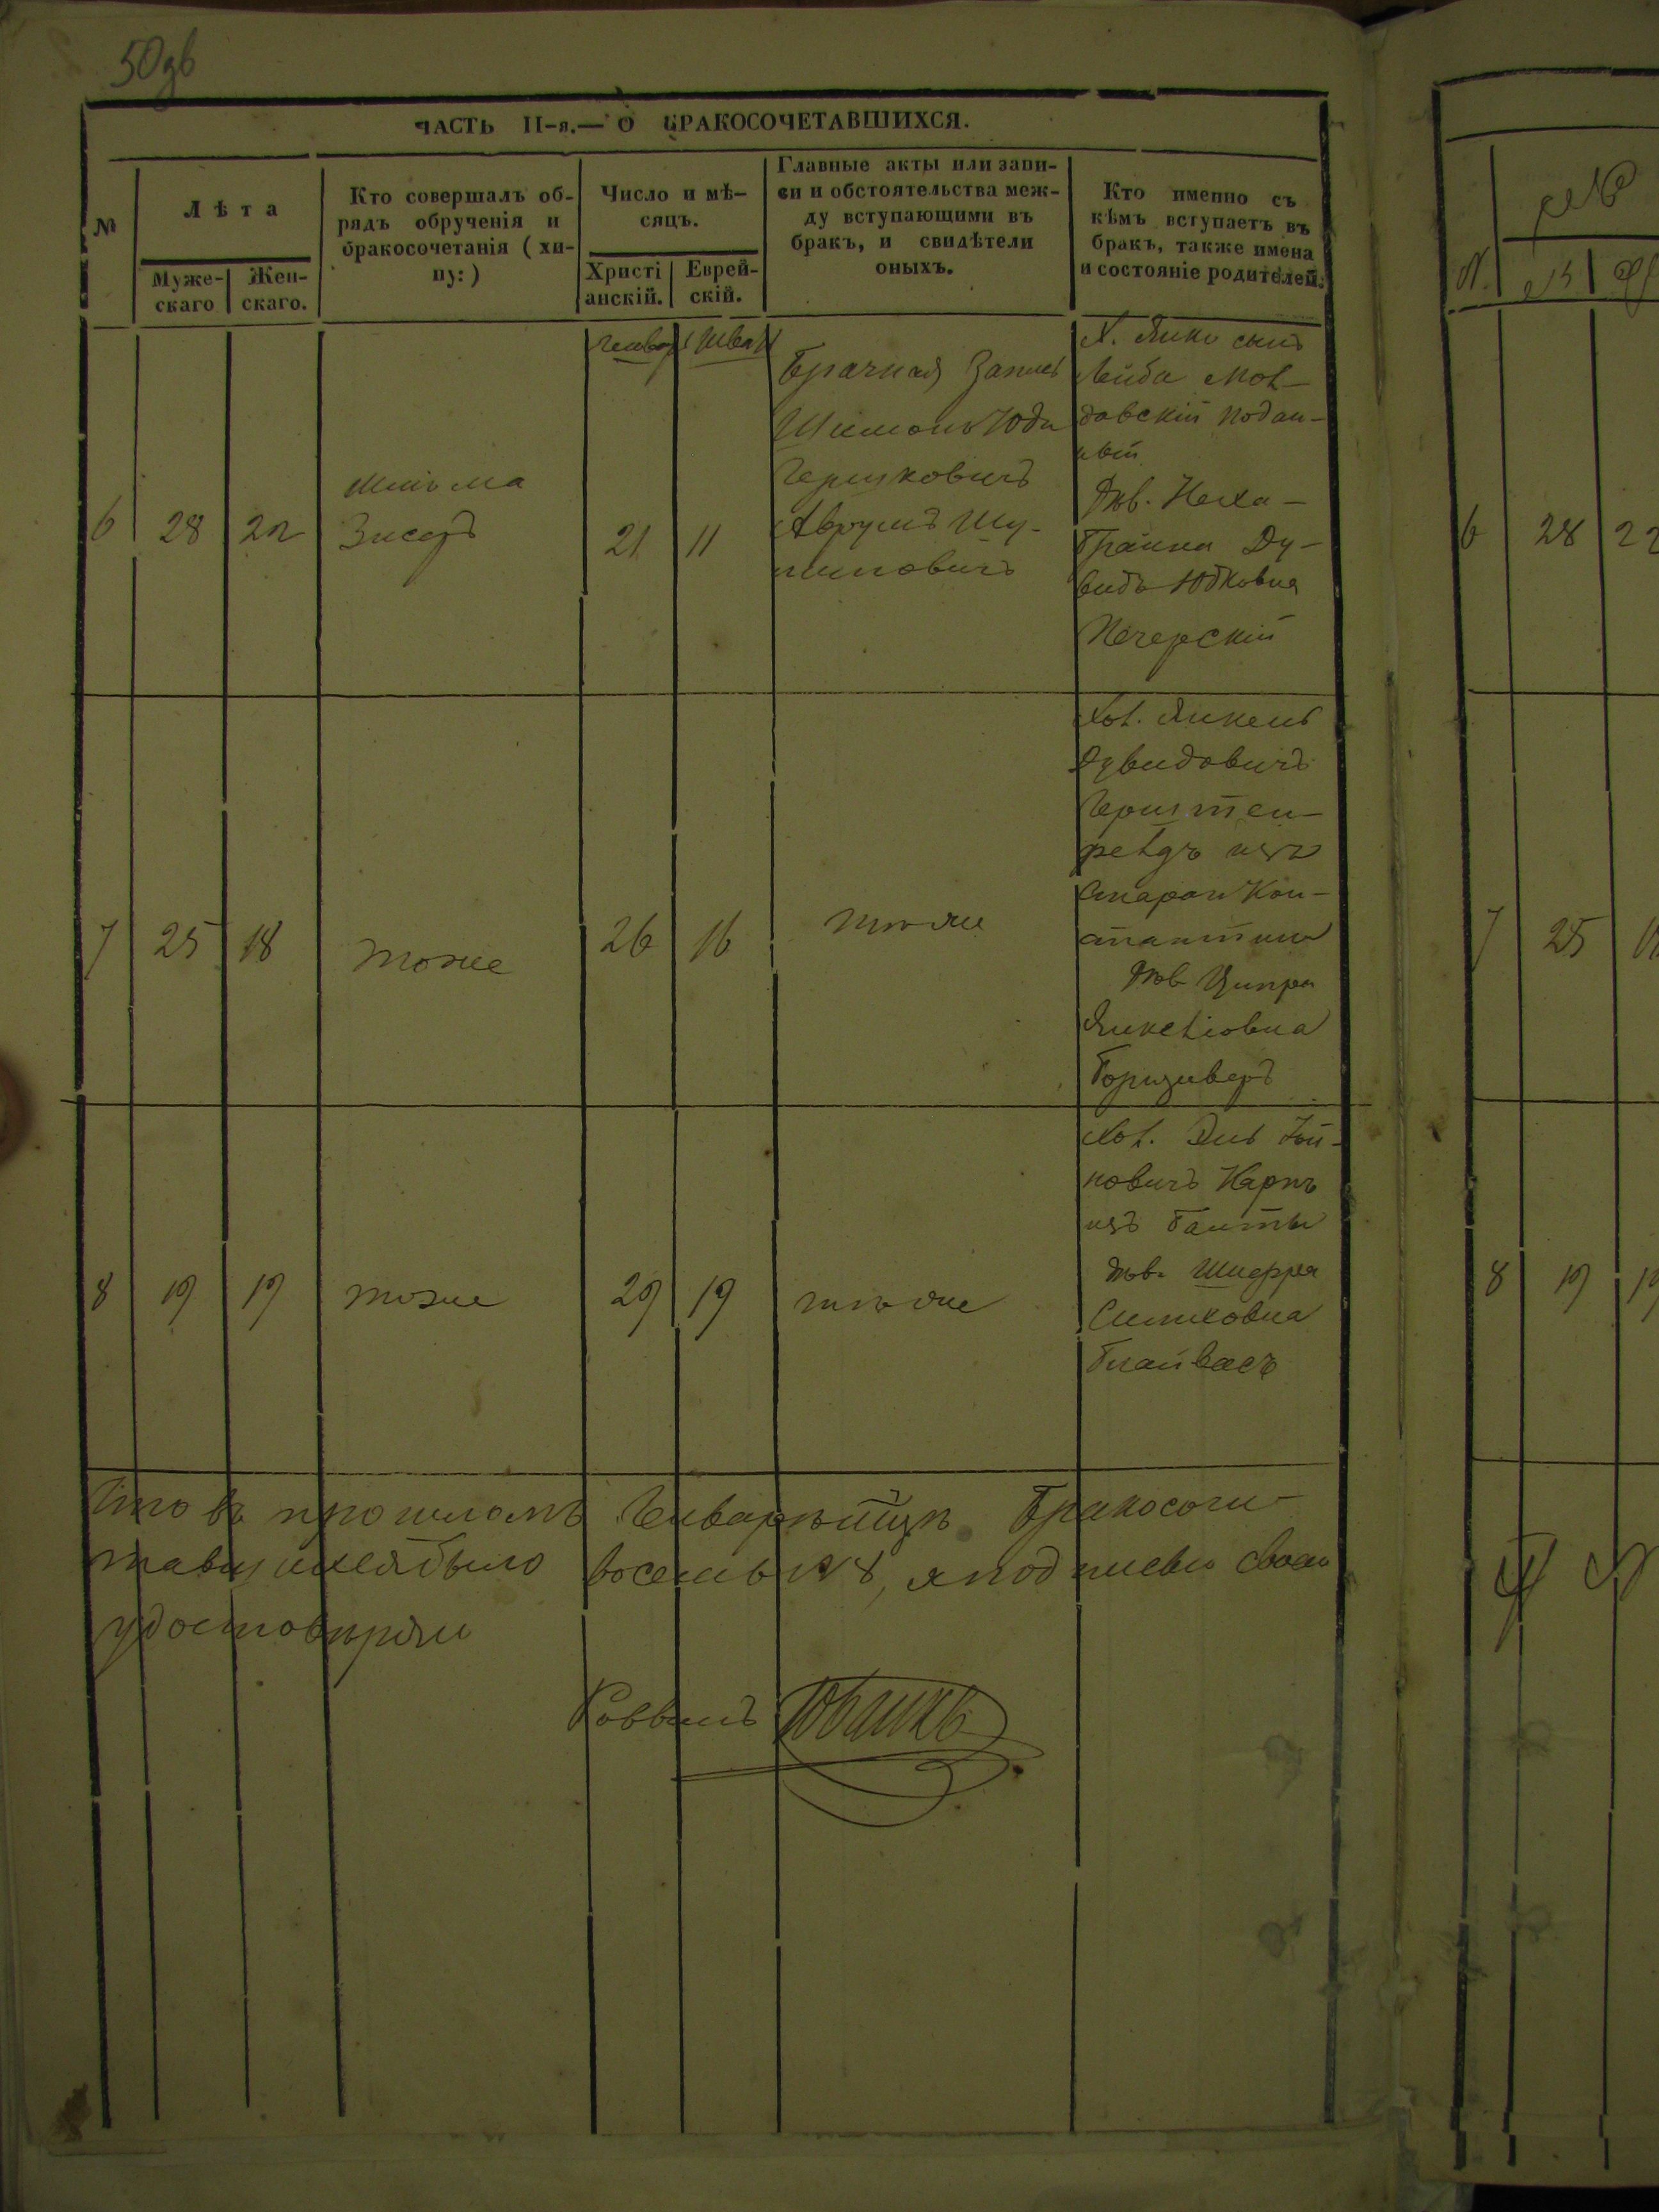 50об
ЧАСТЬ II-я.— О БРАКОСОЧЕТАВШИХСЯ.
№
Лѣта
Муже-
скаго
Жен-
скаго.
Кто совершалъ об-
рядъ обрученія и
бракосочетанія (хи-
пу:)
Число и мѣ-
сяцъ.
Христі
анскій.
Еврей-
скій.
Главные акты или запи-
си и обстоятельства меж-
ду вступающими въ
бракъ, и свидѣтели
оныхъ.
Кто именно съ
кѣмъ вступаетъ въ
бракъ, также имена
и состояніе родителей.
Генвар Шват
6 28 22
Шлюма
Зисеръ
21 11
Брачная Запись
Шимонъ Юда
Гершковичъ
Аврумъ Шу-
лимовичъ
Х. Янко сынъ
Лейба Мол-
давскій подан-
ный
Дѣв. Неха-
Граина Ду-
видъ-Юдковна
Печерскій
7 25 18
тоже
26 16
тѣ же
Хол. Янкель
Дувидовичъ
Герштен-
фелдъ изъ
Старои Кон-
стантинов
Дѣв Ципра
Янкеліовна
Горизиверъ
8 19 19
тоже
29 19
тѣ же
Хол.
новичъ Карпъ
изъ Балты
Дѣв. Шифра
Симховна
Глайвасъ
Что въ прошломъ Генварѣ м̃цѣ Бракосоче-
тавшихся было восемь № 8, я подписью своею
удостовѣряю
Раввинъ
6 28 22
7 25
8 19